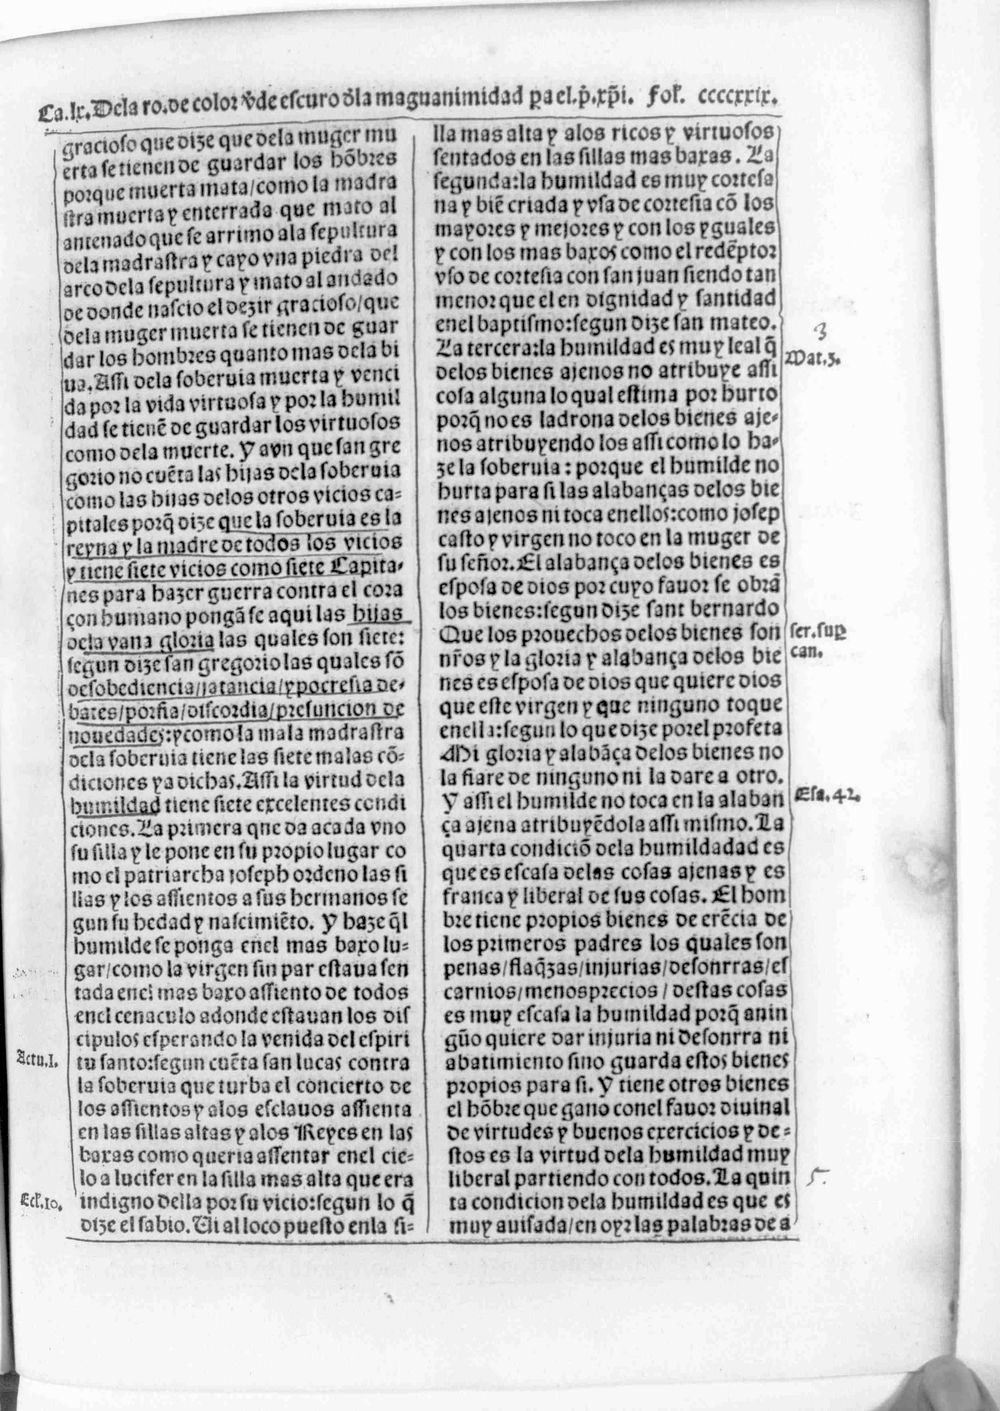 Ca.lx. Dela ro. de color v̾de escuro d̓la magnanimidad pa el.p̃.xp̃i. fol̓. ccccxxix.
gracioso que dize que dela muger mu
erta se tienen de guardar los hõbres
porque muerta mata/como la madra
stra muerta y enterrada que mato al
antenado que se arrimo ala sepultura
dela madrastra y cayo vna piedra del
arco dela sepultura y mato al andado
de donde nascio el dezir gracioso/que
dela muger muerta se tienen de guar
dar los hombres quanto mas dela bi
ua. Assi dela soberuia muerta y venci
da por la vida virtuosa y por la humil
dad se tienẽ de guardar los virtuosos
como dela muerte. Y avn que san gre
gorio no cuẽta las hijas dela soberuia
como las hijas delos otros vicios ca=
pitales porq̃ dize que la soberuia es la
reyna y la madre de todos los vicios
y tiene siete vicios como siete Capita-
nes para hazer guerra contra el cora
çon humano pongã se aqui las hijas
dela vana gloria las quales son siete:
segun dize san gregorio las quales sõ
desobediencia/jatancia/ypocresia de-
bates/porfia/discordia/presuncion de
nouedades: y como la mala madrastra
dela soberuia tiene las siete malas cõ=
diciones ya dichas. Assi la virtud dela
humildad tiene siete excelentes condi
ciones. La primera que da acada vno
su silla y le pone en su propio lugar co
mo el patriarcha joseph ordeno las si
llas y los assientos a sus hermanos se
gun su hedad y nascimiẽto. Y haze q̃l
humilde se ponga enel mas baxo lu=
gar/como la virgen sin par estaua sen
tada enel mas baxo assiento de todos
enel cenaculo adonde estauan los dis
cipulos esperando la venida del espiri
Actu.1.
tu santo: segun cuẽta san lucas contra
la soberuia que turba el concierto de
los assientos y alos esclauos assienta
en las sillas altas y alos Reyes en las
baxas como queria assentar enel cie-
lo a lucifer en la silla mas alta que era
Ecl̓.10.
indigno della por su vicio: segun lo q̃
dize el sabio. Ui al loco puesto enla si=
lla mas alta y alos ricos y virtuosos
sentados en las sillas mas baxas. La
segunda: la humildad es muy cortesa
na y biẽ criada y vsa de cortesia cõ los
mayores y mejores y con los yguales
y con los mas baxos como el redẽptor
vso de cortesia con san juan siendo tan
menor que el en dignidad y santidad
enel baptismo: segun dize san mateo.
3
La tercera: la humildad es muy leal q̃
Mat.3.
delos bienes ajenos no atribuye assi
cosa alguna lo qual estima por hurto
porq̃ no es ladrona delos bienes aje-
nos atribuyendo los assi como lo ha-
ze la soberuia: porque el humilde no
hurta para si las alabanças delos bie
nes ajenos ni toca enellos: como josep
casto y virgen no toco en la muger de
su señor. El alabança delos bienes es
esposa de dios por cuyo fauor se obrã
los bienes: segun dize sant bernardo
Que los prouechos delos bienes son
ser.sup
nr̃os y la gloria y alabança delos bie
can.
nes es esposa de dios que quiere dios
que este virgen y que ninguno toque
enella: segun lo que dize por el profeta
Mi gloria y alabãça delos bienes no
la fiare de ninguno ni la dare a otro.
Y assi el humilde no toca en la alaban
Esa.42.
ça ajena atribuyẽdola assi mismo. La
quarta condiciõ dela humildadad es
que es escasa delas cosas ajenas y es
franca y liberal de sus cosas. El hom
bre tiene propios bienes de erẽcia de
los primeros padres los quales son
penas/flaq̃zas/injurias/desonrras/es
carnios/menosprecios/destas cosas
es muy escasa la humildad porq̃ anin
gũo quiere dar injuria ni desonrra ni
abatimiento sino guarda estos bienes
propios para si. Y tiene otros bienes
el hõbre que gano conel fauor diuinal
de virtudes y buenos exercicios y de=
stos es la virtud dela humildad muy
liberal partiendo con todos. La quin
5.
ta condicion dela humildad es que es
muy auisada/en oyr las palabras de a